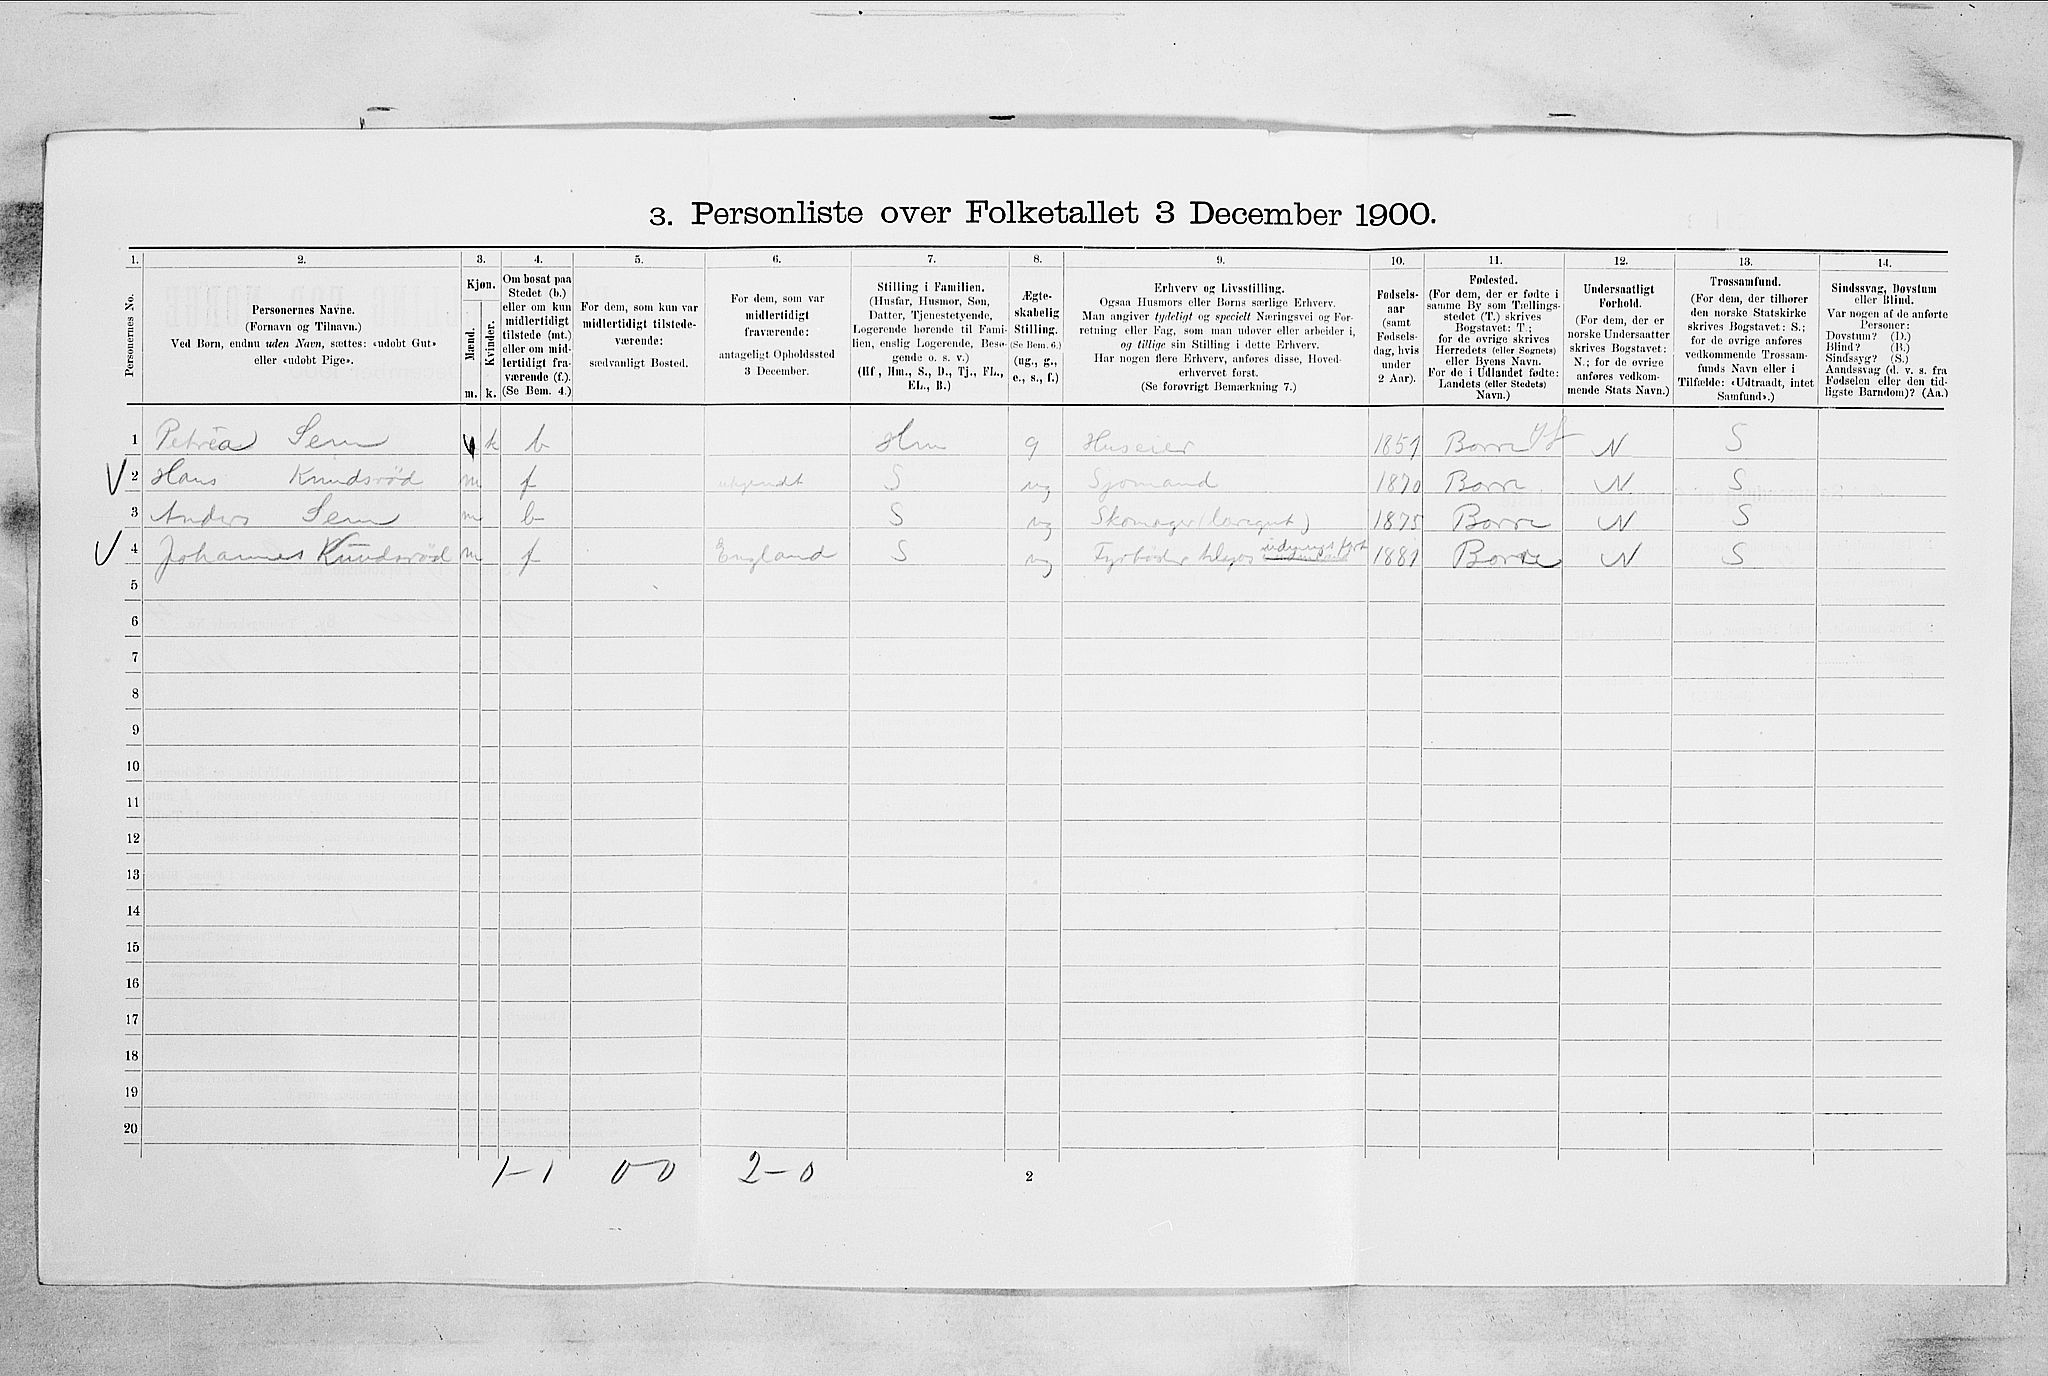 3. Personliste over Folketallet 3 December 1900.
1. 2. 3. 4. 5. 6. 7. 8. 9. 10. 11. 12. 13. 14.
Personernes No.
Personernes Navne.
(Fornavn og Tilnavn.)
Ved Børn, endnu uden Navn, sættes: «udøbt Gut»
eller «udøbt Pige».
Kjøn.
Mænd.
Kvinder.
m. k.
Om bosat paa
Stedet (b.)
eller om kun
midlertidigt
tilstede (mt.)
eller om mid-
lertidigt fra-
værende (f.).
(Se Bem. 4.)
For dem, som kun var
midlertidigt tilstede-
værende:
sædvanligt Bosted.
For dem, som var
midlertidigt
fraværende:
antageligt Opholdssted
3 December.
Stilling i Familien.
(Husfar, Husmor, Søn,
Datter, Tjenestetyende,
Logerende hørende til Fami-
lien, enslig Logerende, Besø-
gende o. s. v.)
(Hf., Hm., S., D., Tj., FL.,
EL., B.)
Ægte-
skabelig
Stilling.
(Se Bem. 6.)
(ug., g.,
e., s., f.)
Erhverv og Livsstilling.
Ogsaa Husmors eller Børns særlige Erhverv.
Man angiver tydeligt og specielt Næringsvei og For-
retning eller Fag, som man udøver eller arbeider i,
og tillige sin Stilling i dette Erhverv.
Har nogen flere Erhverv, anføres disse, Hoved-
erhvervet først.
(Se forøvrigt Bemærkning 7.)
Fødsels-
aar
(samt
Fødsels-
dag, hvis
under
2 Aar).
Fødested.
(For dem, der er fødte i
samme By som Tællings-
stedet (T.) skrives
Bogstavet: T.;
for de øvrige skrives
Herredets (eller Sognets)
eller Byens Navn.
For de i Udlandet fødte:
Landets (eller Stedets)
Navn.)
Undersaatligt
Forhold.
(For dem, der er
norske Undersaatter
skrives Bogstavet:
N.; for de øvrige
anføres vedkom-
mende Stats Navn.)
Trossamfund.
(For dem, der tilhører
den norske Statskirke
skrives Bogstavet: S.;
for de øvrige anføres
vedkommende Trossam-
funds Navn eller i
Tilfælde: «Udtraadt, intet
Samfund».)
Sindssvag, Døvstum
eller Blind.
Var nogen af de anførte
Personer:
Døvstum? (D.)
Blind? (B.)
Sindssyg? (S.)
Aandssvag (d. v. s. fra
Fødselen eller den tid-
ligste Barndom)? (Aa.)
1 Petrea Sem k b Hm g Huseier 1851 Borre N S
2 Hans Knudsrød m f ubjendt S ug Sjømand 1870 Borre N S
3 Anders Sem m b S ug Skomager (læregut) 1875 Borre N S
4 Johannes Knudsrød m f England S ug Fyrbøder udenrigs fart 1881 Borre N S
5
6
7
8
9
10
11
12
13
14
15
16
17
18
19
20
1-1 0-0 2-0
2